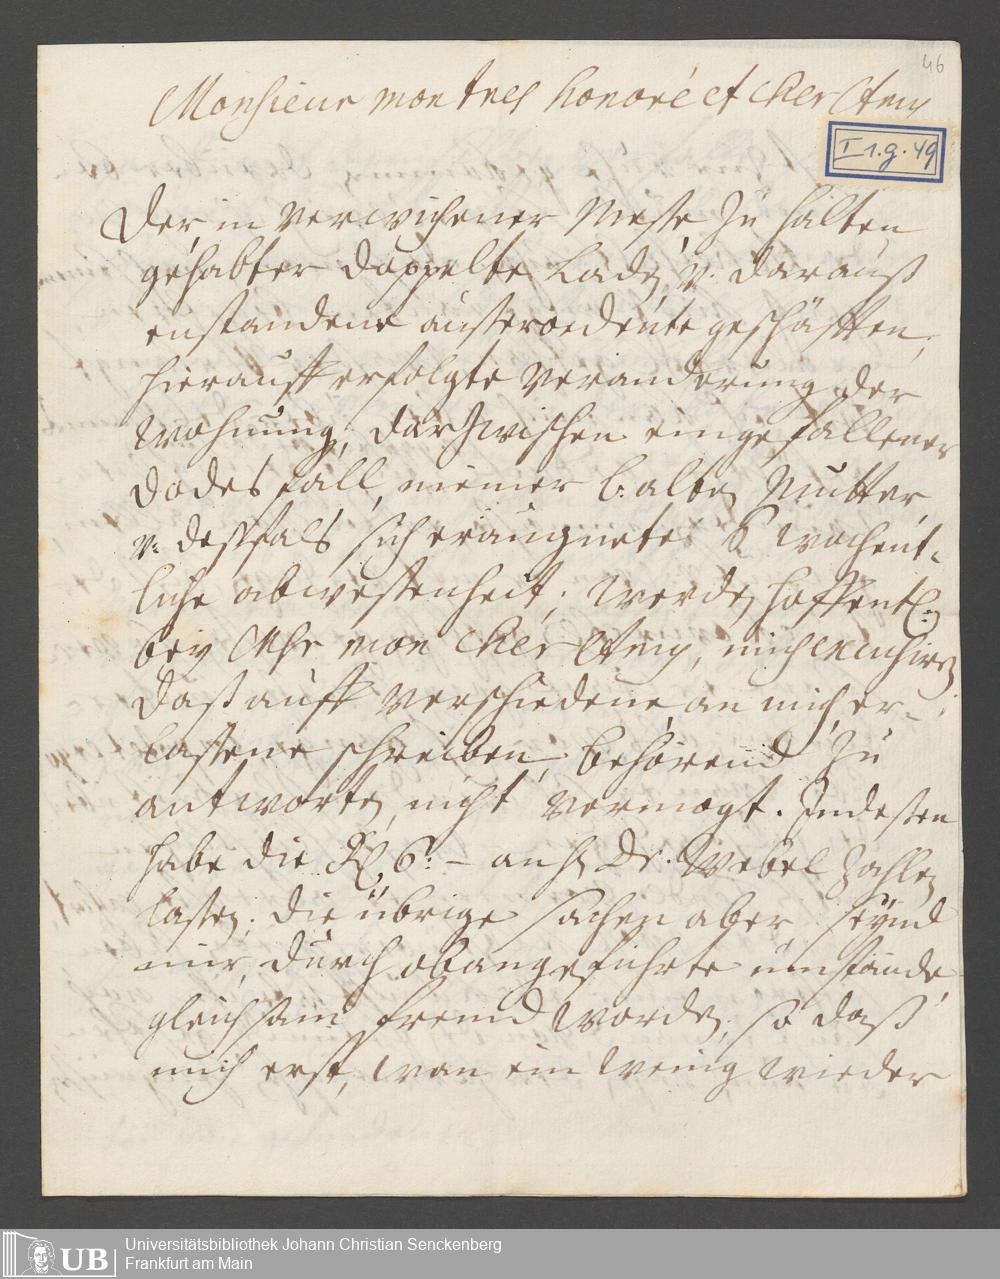 46
Monsieur mon tres honoré et cher Amy
I 1. g. 49
Der, in verwichener Messe, zu halten
gehabter doppelte Laden, v. darauß
enstandene ausserordente geschäfften,
hierauff erfolgte Veranderung der
Wohnung, darzwischen eingefallener
Dodesfall, meiner l. alten Mutter,
v: desfals sich eraügnete 6 wochent-
liche abwesenheit; werden hoffentl:
bey Mhr mon cher Amy, mich excusiren
daß auff verschiedene, an mich er-
lassene schreiben, behörend zu
antworten, nicht vermogt. Indessen
habe die 6: – an H Dr. Webel zahlen
lassen; die übrige sachen aber seynd
mir, durch obangeführte umstände,
gleichsam frembd worden, so daß
mich erst, wan ein wenig wieder
Universitätsbibliothek Johann Christian Senckenberg
Frankfurt am Main
UB